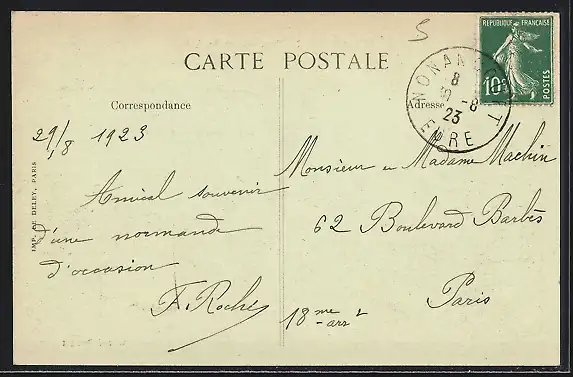 5
CARTE POSTALE
REPUBLIQUE FRANÇAISE
10c
POSTES
NONANCOURT
EURE
8
-8
23
Correspondance
Adresse
29/8 1923
Amical souvenir
d'une normande
d'occasion
F. Roche
Monsieur et Madame Machin
62 Boulevard Barbès
Paris
18me arrt
IMP. DE DELEY, PARIS